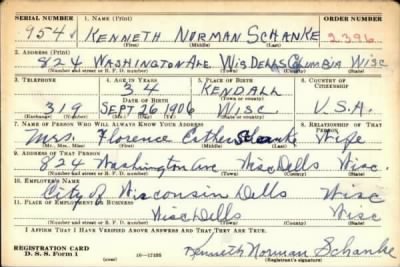 SERIAL NUMBER 1. NAME (Print) ORDER NUMBER
954 KENNETH NORMAN SCHANKE 2396
(First) (Middle) (Last)
2. ADDRESS (Print)
824 WASHINGTON AVE. WIS DELLS COLUMBIA WISC
(Number and street or R. F. D. number) (Town) (County) (State)
3. TELEPHONE 4. AGE IN YEARS 5. PLACE OF BIRTH 6. COUNTRY OF CITIZENSHIP
34 KENDALL
DATE OF BIRTH (Town or county)
319 SEPT 26 1906 WISC. U.S.A.
(Exchange) (Number) (Mo.) (Day) (Yr.) (State or country)
7. NAME OF PERSON WHO WILL ALWAYS KNOW YOUR ADDRESS 8. RELATIONSHIP OF THAT PERSON
Mrs. Florence Esther Schanke Wife
(Mr., Mrs., Miss) (First) (Middle) (Last)
9. ADDRESS OF THAT PERSON
824 Washington Ave Wisc Dells Wisc.
(Number and street or R. F. D. number) (Town) (County) (State)
10. EMPLOYER'S NAME
City of Wisconsin Dells Wisc
11. PLACE OF EMPLOYMENT OR BUSINESS
Wisc Dells Wisc
(Number and street or R. F. D. number) (Town) (County) (State)
I AFFIRM THAT I HAVE VERIFIED ABOVE ANSWERS AND THAT THEY ARE TRUE.
REGISTRATION CARD
D. S. S. Form 1 (over) 16—17105 Kenneth Norman Schanke
(Registrant's signature)